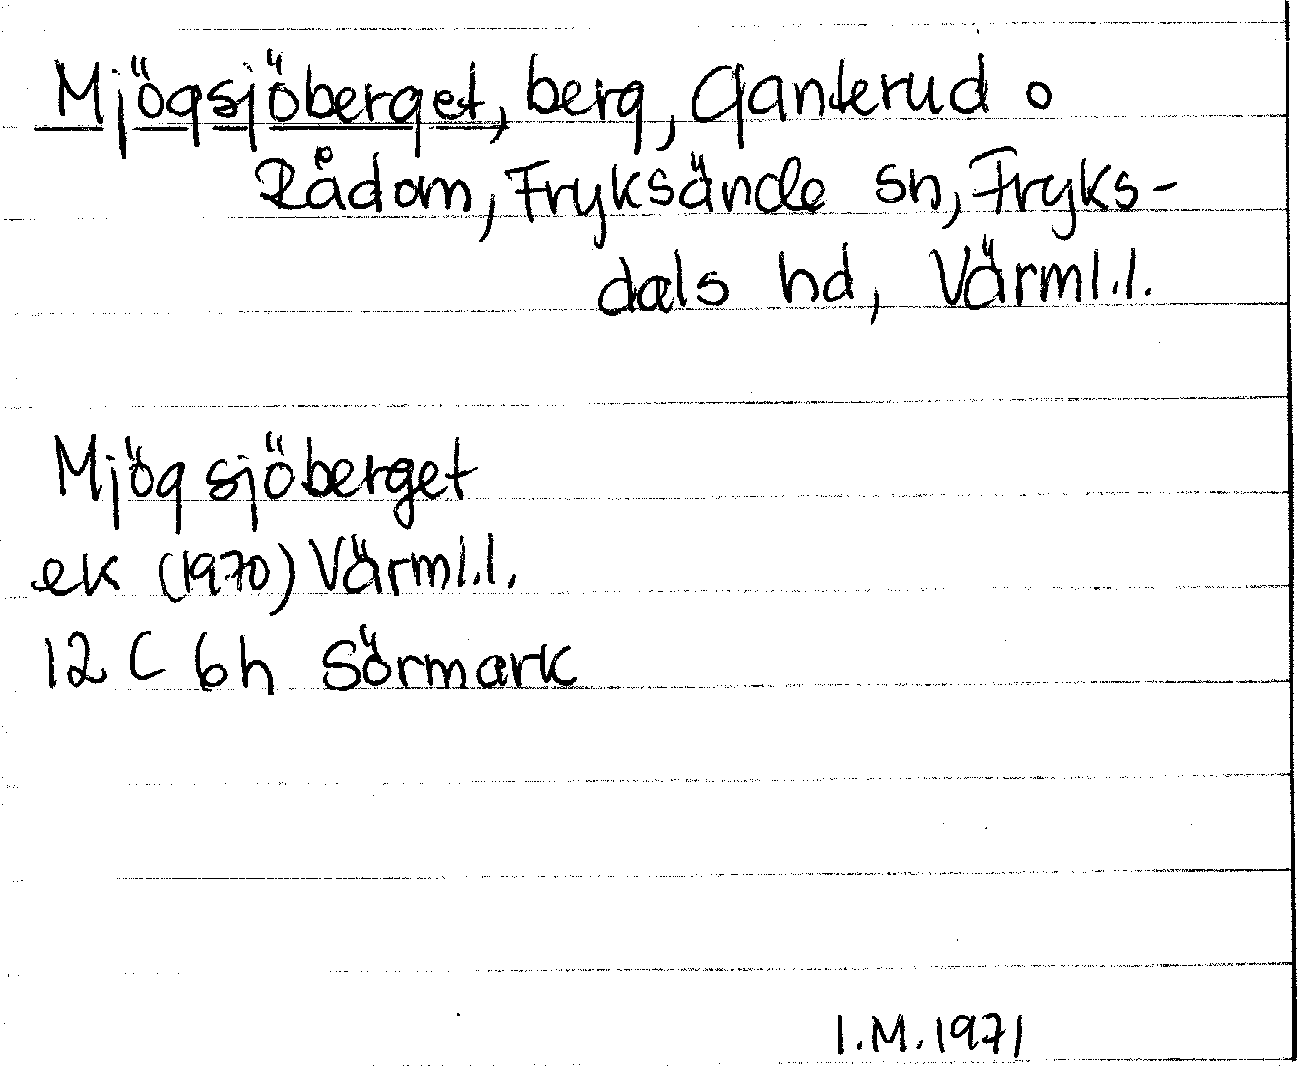 Mjögsjöberget, berg, Ganterud o
Rådom, Fryksände sn, Fryks-
dals hd, Värml.l.
Mjögsjöberget
ek (1970) Värml.l.
12 C 6h Sörmark
I.M. 1971